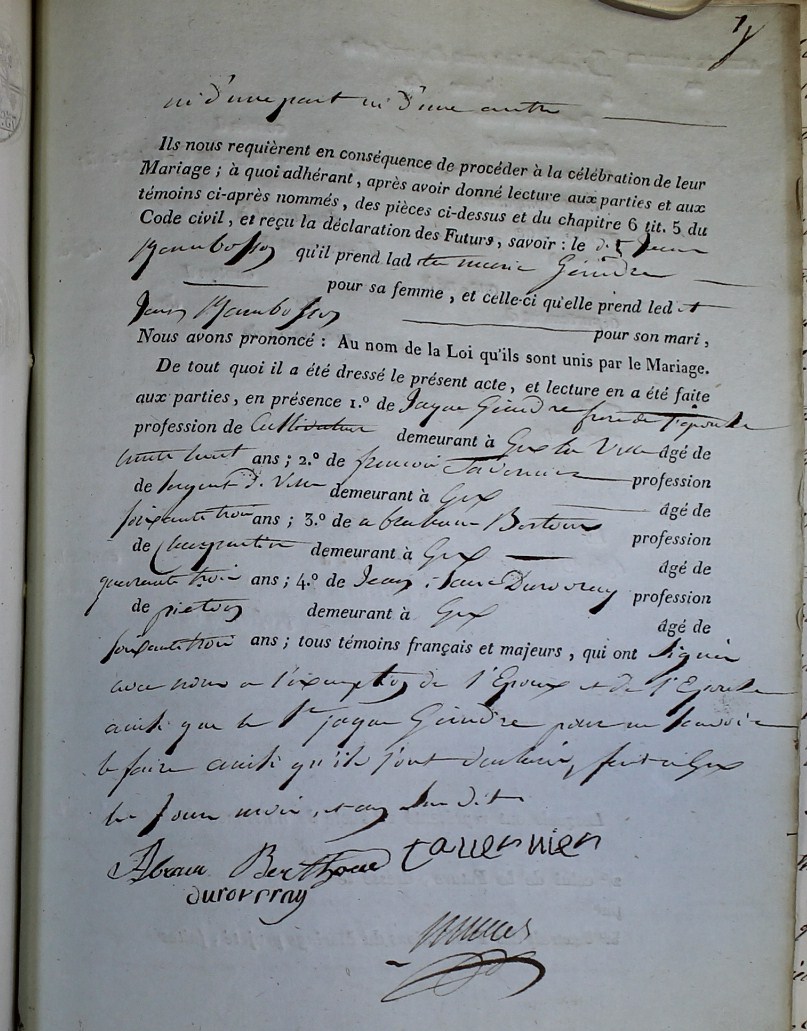 ni d'une part ni d'une autre
Ils nous requièrent en conséquence de procéder à la célébration de leur
Mariage ; à quoi adhérant, après avoir donné lecture aux parties et aux
témoins ci-après nommés, des pièces ci-dessus et du chapitre 6 tit. 5 du
Code civil, et reçu la déclaration des Futurs, savoir : le dit Jean
qu'il prend lad ite marie Geindre
pour sa femme, et celle-ci qu'elle prend led it
Jean pour son mari,
Nous avons prononcé : Au nom de la Loi qu'ils sont unis par le Mariage.
De tout quoi il a été dressé le présent acte, et lecture en a été faite
aux parties, en présence 1.º de Jaque Geindre frere de l'epouse
profession de Cultivateur demeurant à Gex la Ville âgé de
trente huit ans ; 2.º de francois Tavernier profession
de sergent de Ville demeurant à Gex âgé de
soixante trois ans ; 3.º de abraham Bertoux profession
de Charpentier demeurant à Gex âgé de
quarante trois ans ; 4.º de Jean profession
de pieton demeurant à Gex âgé de
soixante trois ans ; tous témoins français et majeurs, qui ont signés
avec nous a l'exeption de l'Epoux et de l'Epouse
ainsi que le Sr Jaque Geindre pour ne savoir
le faire ainsi qu'ils l'ont declaré, fait a Gex
les Jour mois et an sus dit
Abram Berthoud tavernier